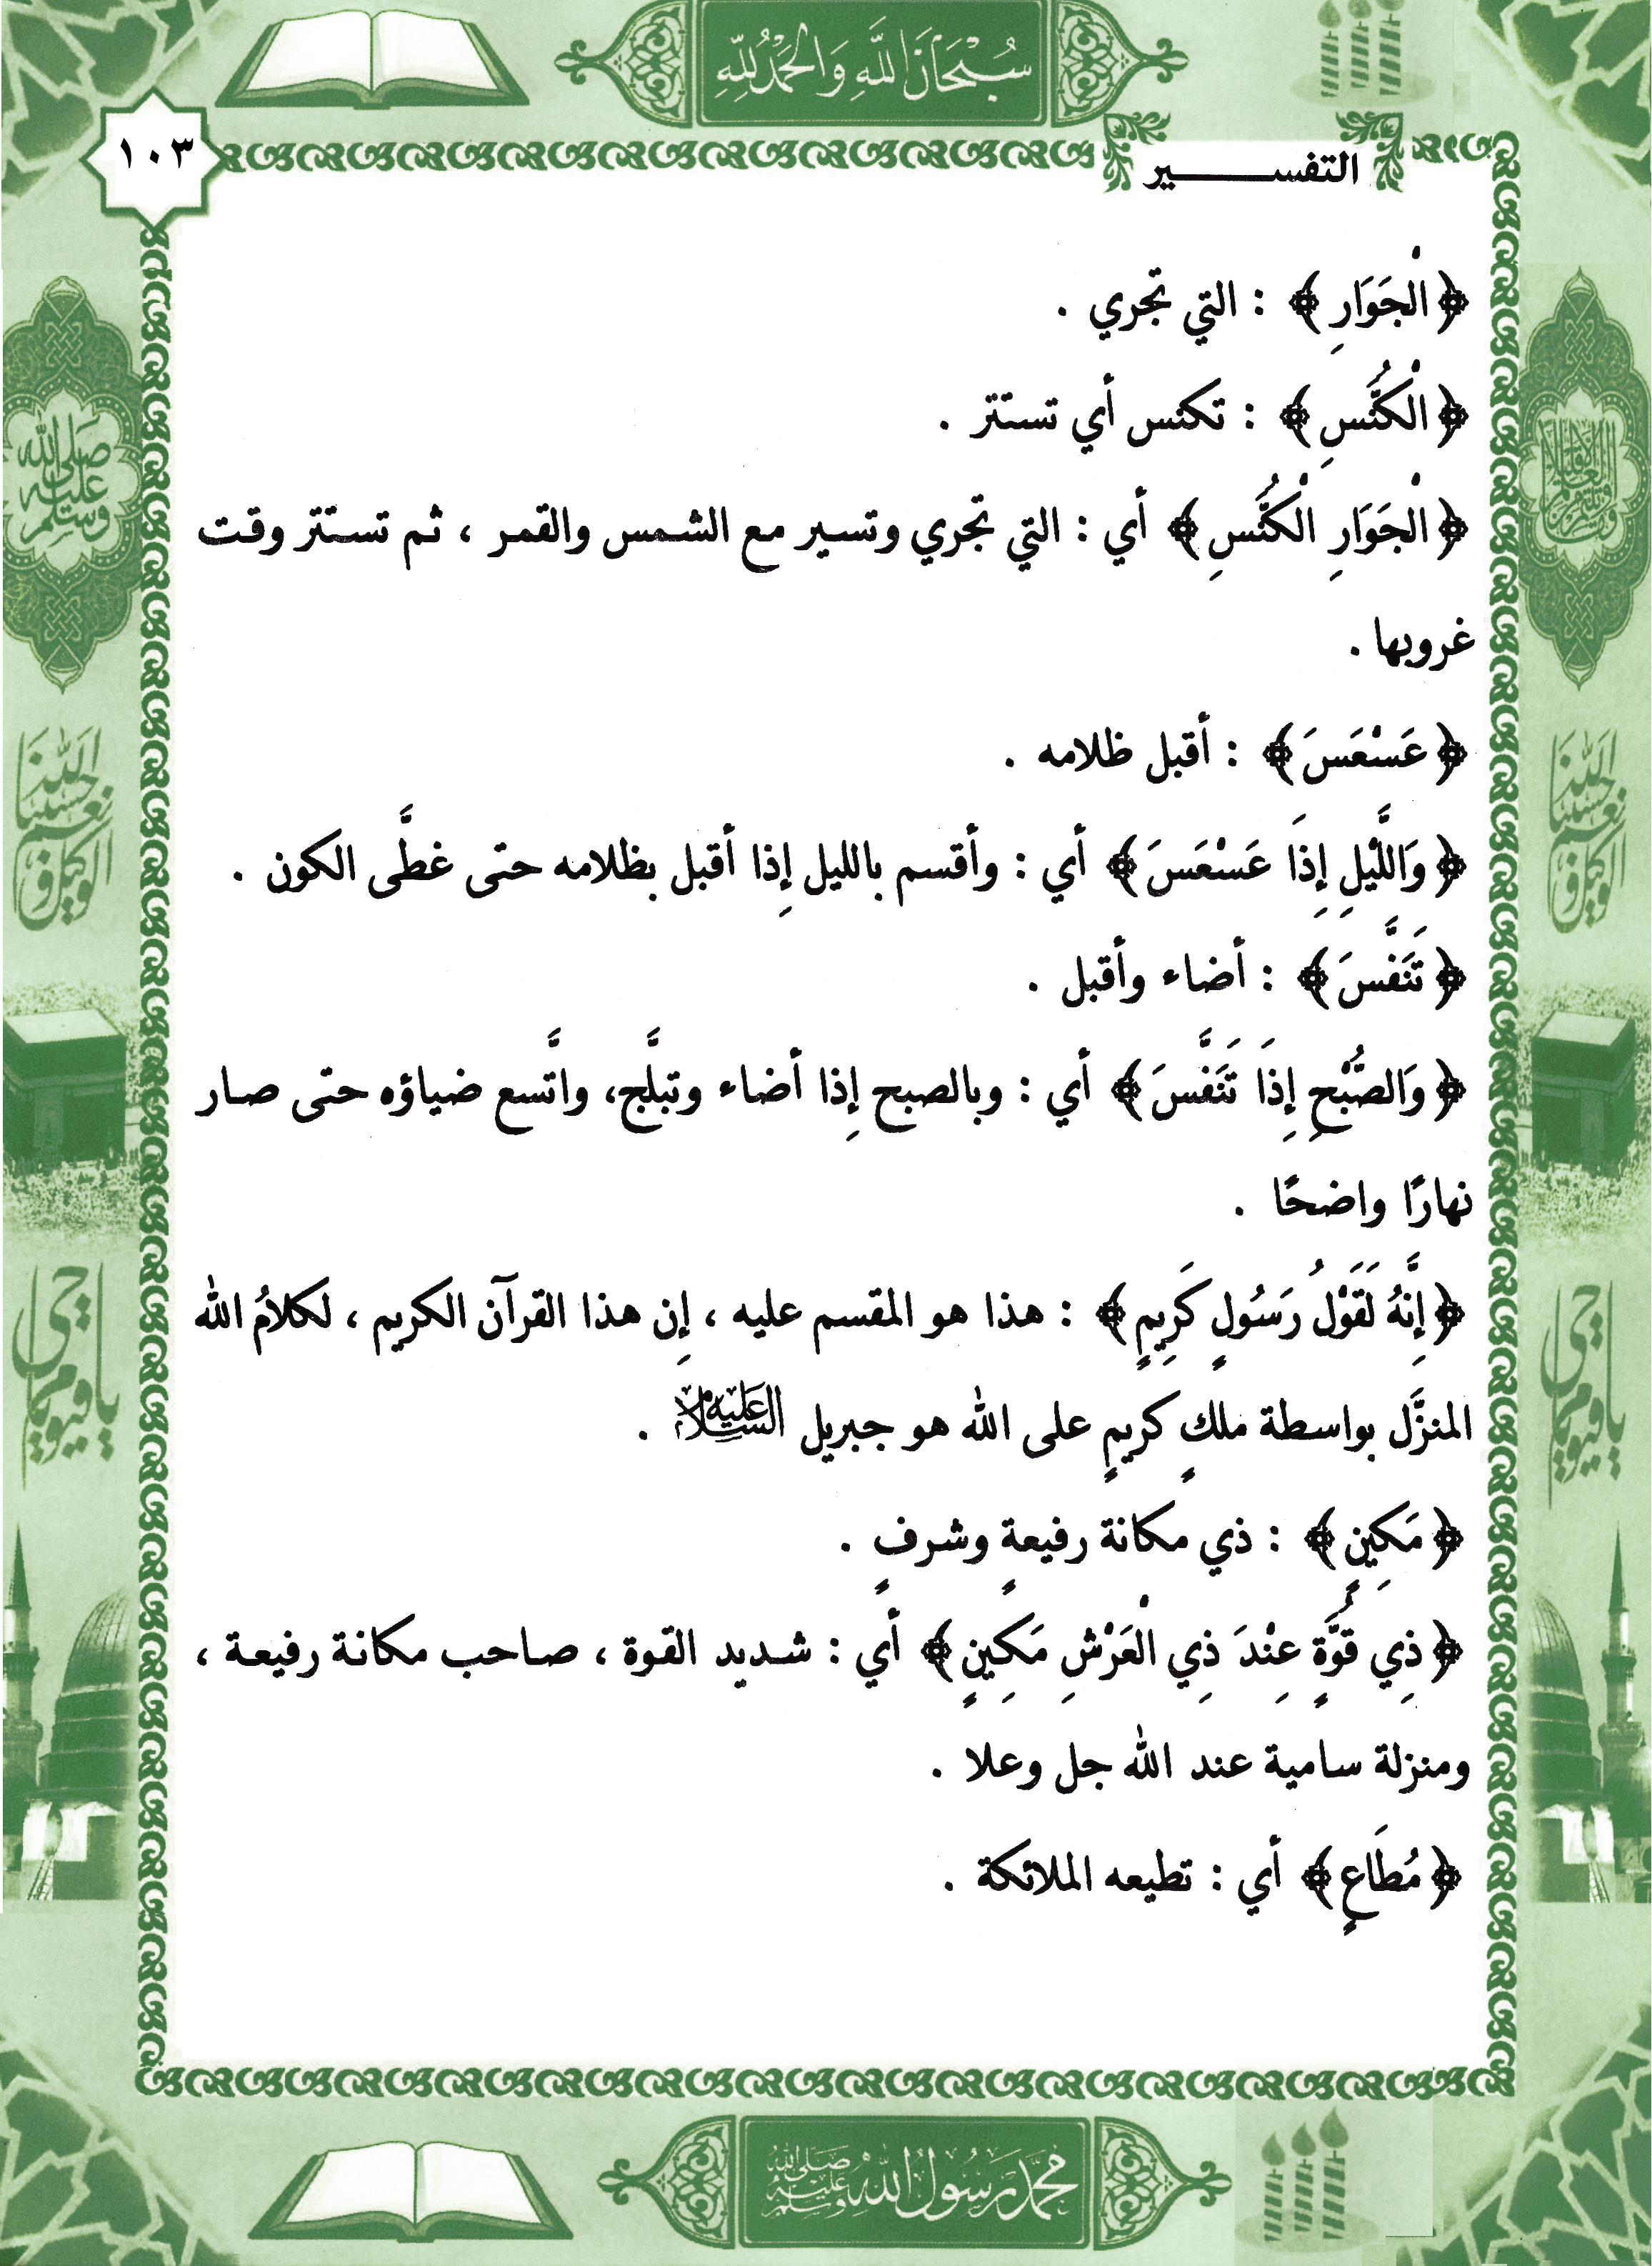 سُبْحَانَ اللَّهِ وَالْحَمْدُ لِلَّهِ
١٠٣
التفسير
﴿الْجَوَارِ﴾ : التي تجري .
﴿الْكُنَّسِ﴾ : تكنس أي تستتر .
﴿الْجَوَارِ الْكُنَّسِ﴾ أي : التي تجري وتسير مع الشمس والقمر ، ثم تستتر وقت
غروبها .
﴿عَسْعَسَ﴾ : أقبل ظلامه .
﴿وَاللَّيْلِ إِذَا عَسْعَسَ﴾ أي : وأقسم بالليل إِذا أقبل بظلامه حتى غطَّى الكون .
﴿تَنَفَّسَ﴾ : أضاء وأقبل .
﴿وَالصُّبْحِ إِذَا تَنَفَّسَ﴾ أي : وبالصبح إِذا أضاء وتبلَّج، واتَّسع ضياؤه حتى صار
نهارًا واضحًا .
﴿إِنَّهُ لَقَوْلُ رَسُولٍ كَرِيمٍ﴾ : هذا هو المقسم عليه ، إِن هذا القرآن الكريم ، لكلامُ الله
المنزَّل بواسطة ملكٍ كريمٍ على الله هو جبريل عليه السلام .
﴿مَكِينٍ﴾ : ذي مكانة رفيعةٍ وشرفٍ .
﴿ذِي قُوَّةٍ عِنْدَ ذِي الْعَرْشِ مَكِينٍ﴾ أي : شديد القوة ، صاحب مكانة رفيعة ،
ومنزلة سامية عند الله جل وعلا .
﴿مُطَاعٍ﴾ أي : تطيعه الملائكة .
صلى الله عليه وسلم
حسبنا الله ونعم الوكيل
حسبنا الله ونعم الوكيل
يا حي يا قيوم
يا حي يا قيوم
محمد رسول الله صلى الله عليه وسلم